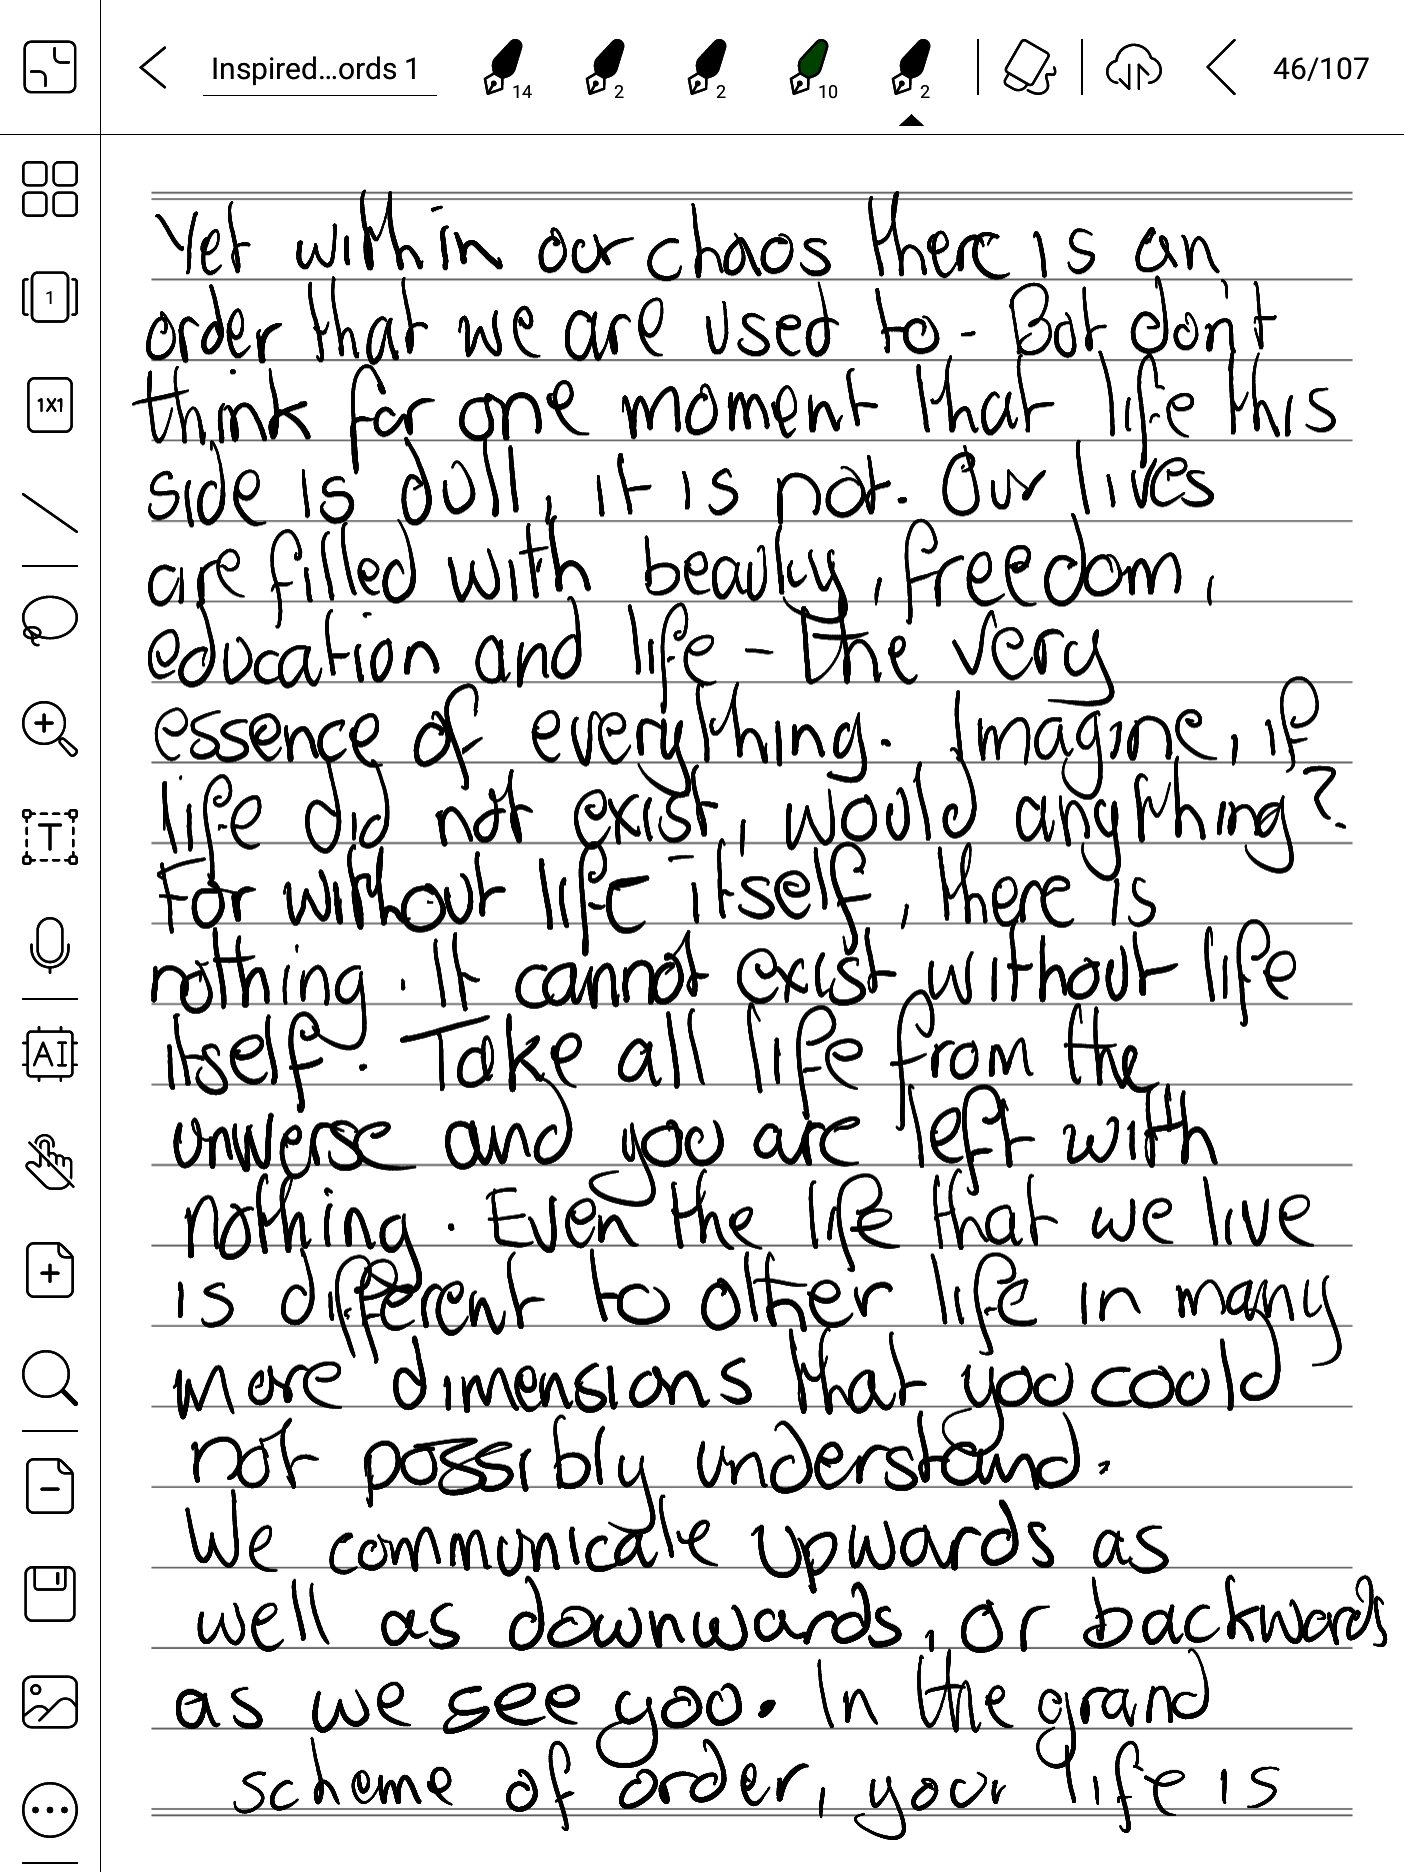 Inspired...ords 1
14
2
2
10
2
46/107
1
1X1
T
AI
Yet within our chaos there is an
order that we are used to - But don't
think for one moment that life this
side is dull, it is not. Our lives
are filled with beauty, freedom,
education and life - the very
essence of everything. Imagine, if
life did not exist, would anything?
For without life itself, there is
nothing. It cannot exist without life
itself. Take all life from the
universe and you are left with
nothing. Even the life that we live
is different to other life in many
more dimensions that you could
not possibly understand.
We communicate upwards as
well as downwards, or backwards
as we see you. In the grand
scheme of order, your life is